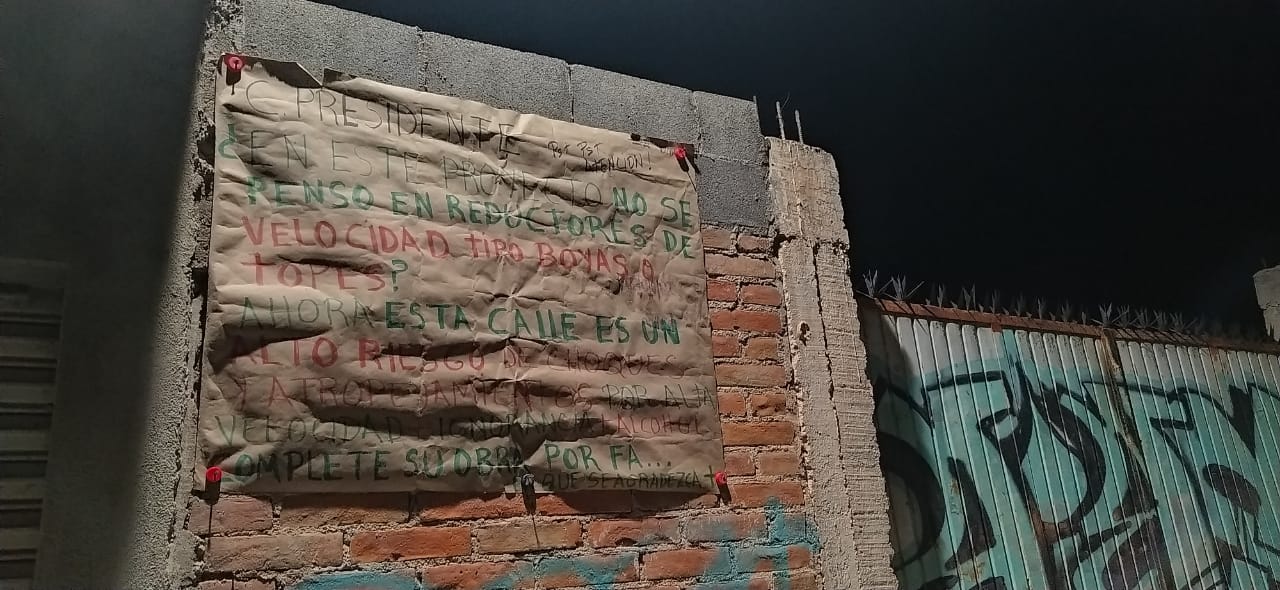 C. PRESIDENTE
PST PST
ATENCIÓN!
¿EN ESTE PROYECTO NO SE
PENSO EN REDUCTORES DE
VELOCIDAD TIPO BOYAS O
TOPES?
AHORA ESTA CALLE ES UN
ALTO RIESGO DE CHOQUES
Y ATROPELLAMIENTOS POR ALTA
VELOCIDAD, IGNORANCIA, ALCOHOL
COMPLETE SU OBRA POR FA...
QUE SE AGRADEZCA +